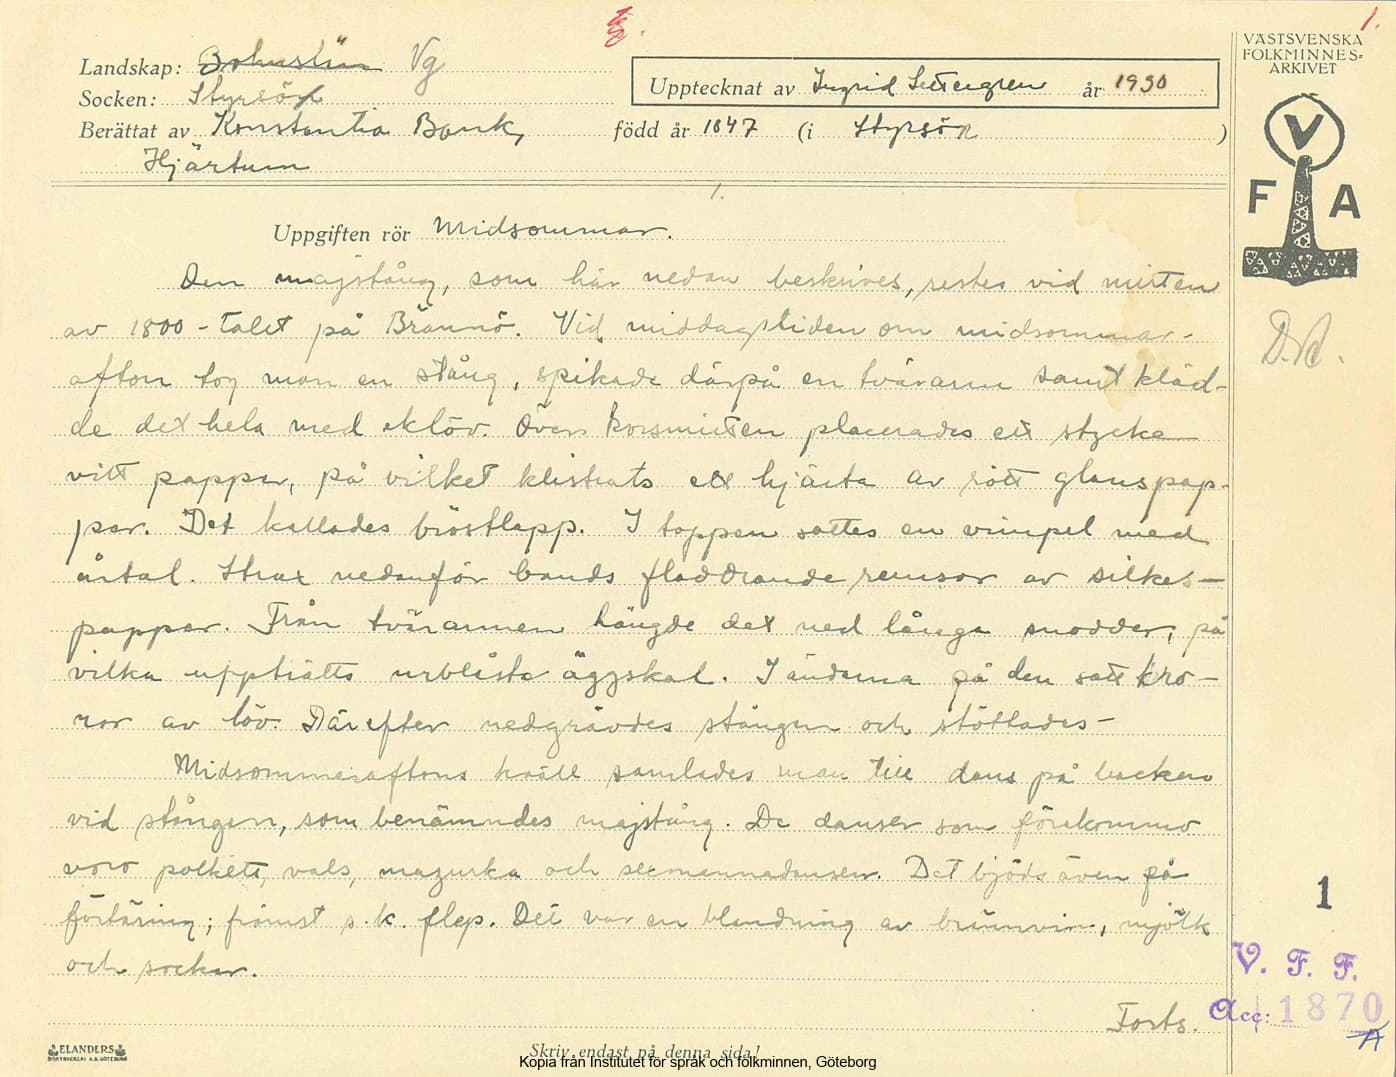 1.
Landskap: Bohuslän Vg
Socken: Styrsö
Upptecknat av Ingrid år 1930
Berättat av Konstantia Bank, född år 1847 (i Styrsö )
Hjärtum
1.
Uppgiften rör Midsommar.
Den majstång, som här nedan beskrives, restes vid mitten
av 1800-talet på Brännö. Vid middagstiden om midsommar-
afton tog man en stång, spikade därpå en tvärarm samt kläd-
de det hela med eklöv. Över korsmitten placerades ett stycke
vitt papper, på vilket klistrats ett hjärta av rött glanspap-
per. Det kallades bröstlapp. I toppen sattes en vimpel med
årtal. Strax nedanför bands fladdrande remsor av silkes-
papper. Från tvärarmen hängde det ned långa snodder, på
vilka uppträtts urblåsta äggskal. I ändarna på den satt kro-
nor av löv. Därefter nedgrävdes stången och stöttades-
Midsommaraftons kväll samlades man till dans på backen
vid stången, som benämndes majstång. De danser som förekommo
voro polkett, vals, mazurka och seemannadansen. Det bjöds även på
förtäring; främst s.k. flep. Det var en blandning av brännvin, mjölk
och socker.
Forts.
VÄSTSVENSKA
FOLKMINNES-
ARKIVET
V
F A
1
V. F. F.
Acc: 1870
A
ELANDERS
BOKTRYCKERI A.B. GÖTEBORG
Skriv endast på denna sida!
Kopia från Institutet för språk och folkminnen, Göteborg